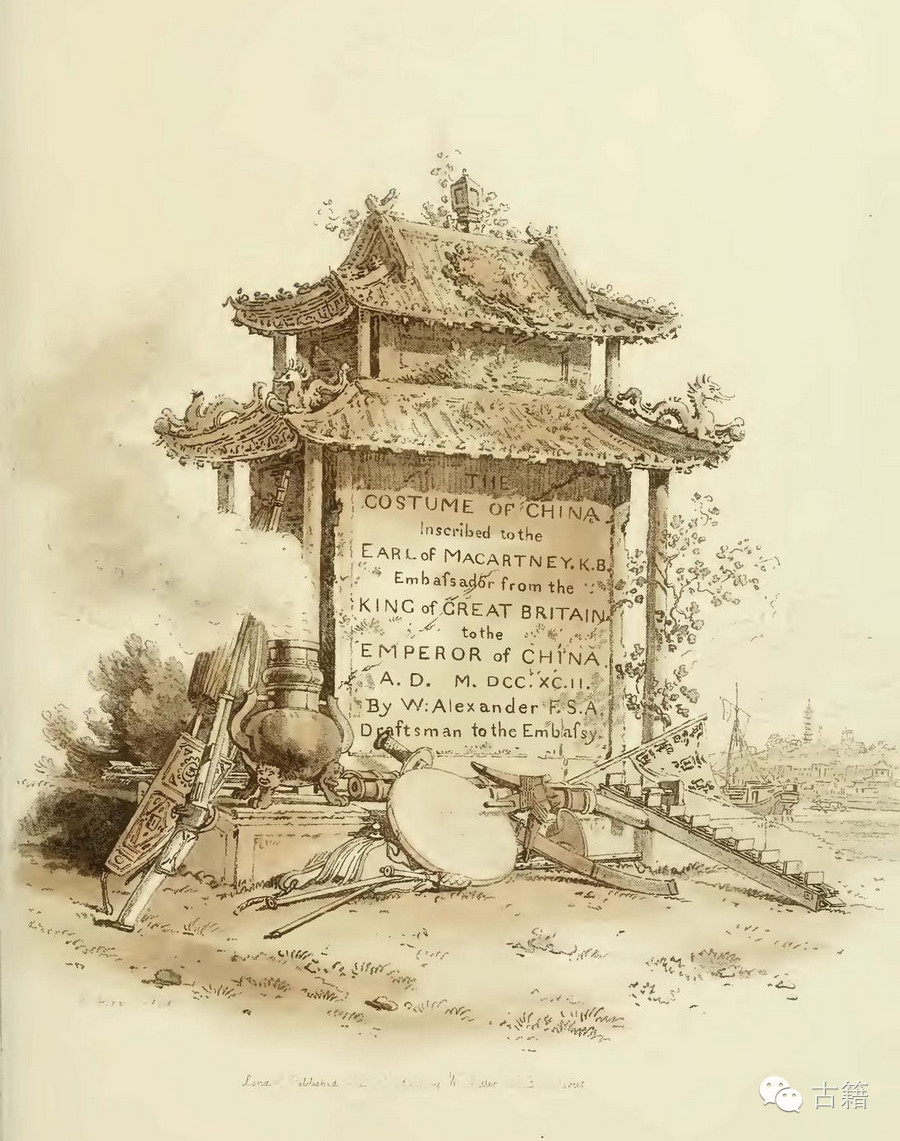 THE
COSTUME OF CHINA
Inscribed to the
EARL of MACARTNEY. K.B.
Embaſsador from the
KING of GREAT BRITAIN
to the
EMPEROR of CHINA.
A. D. M. DCC. XC. II.
By W: Alexander F. S. A.
Draftsman to the Embaſsy.
古籍